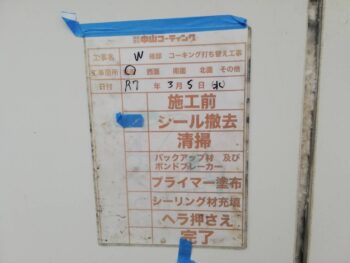 中山コーティング
工事名 W 様邸 コーキング打ち替え工事
工事箇所 西面 南面 北面 その他
日付 R7 年 3 月 5 日
施工前
シール撤去
清掃
バックアップ材 及び
ボンドブレーカー
プライマー塗布
シーリング材充填
ヘラ押さえ
完了